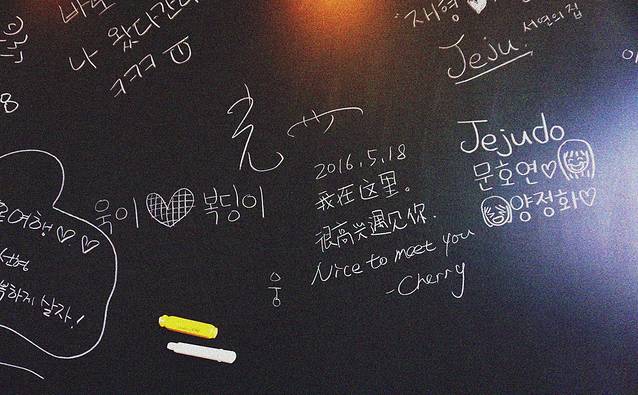 바로
나 왔다간다
ㅋㅋㅋ
재형♥
Jeju. 서연의집
8
2016.5.18
我在这里。
很高兴遇见你.
Nice to meet you
-Cherry
Jejudo
문호연♡
양정화♡
욱이♥복덩이
여행♡♡
선형
복하게 살자!